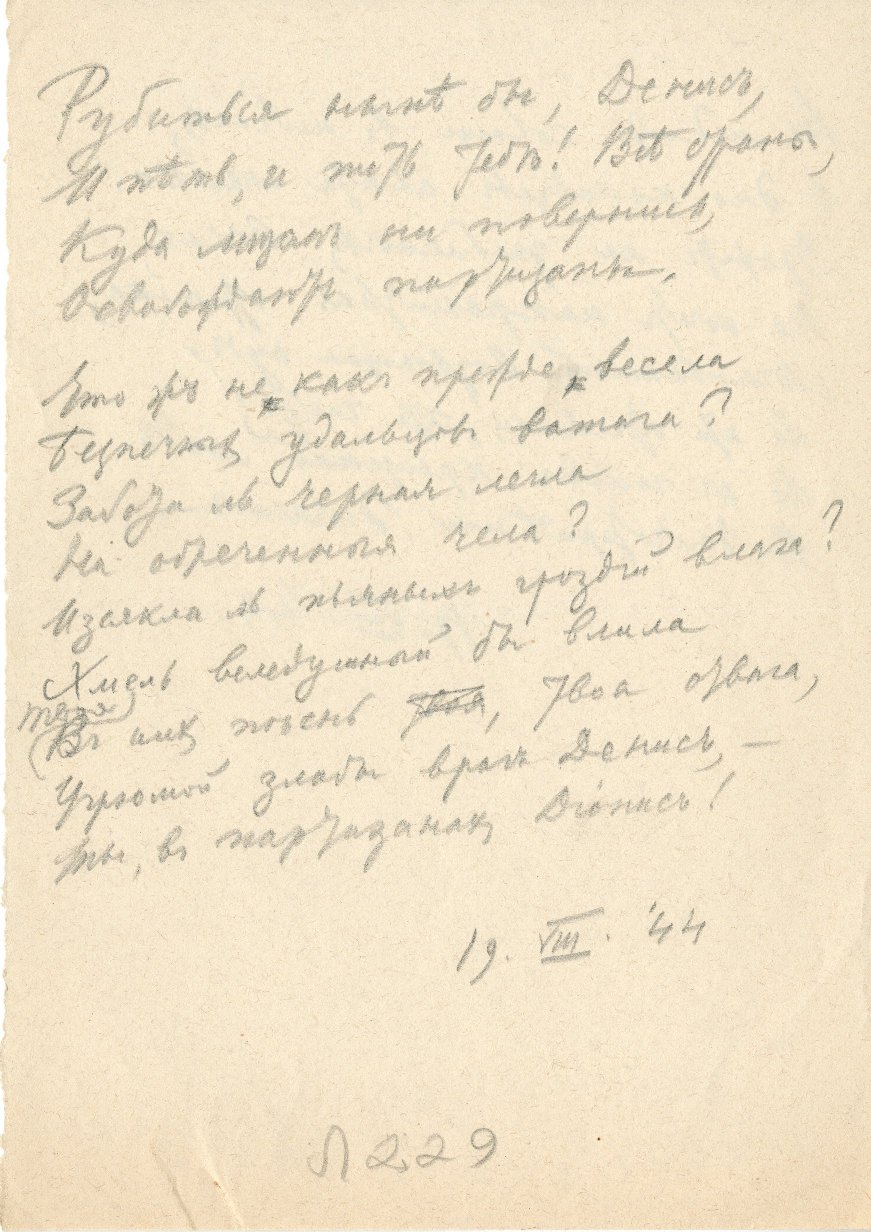 Рубиться нынѣ бы, Денисъ,
И пѣть, и пить тебѣ! Всѣ страны,
Куда лицомъ ни повернись,
Освобождаютъ партизаны.
Что жъ не, какъ прежде, весела
Безпечныхъ удальцовъ ватага?
Забота ль черная легла
На обреченныя чела?
Изсякла ль пьяныхъ гроздій влага?
Хмель великодушный бы влила
Въ нихъ пѣснь твоя, твоя отвага,
Угрюмой злобы врагъ Денисъ, —
Ты, въ партизанахъ Діонисъ!
19. VIII. '44
Л 229